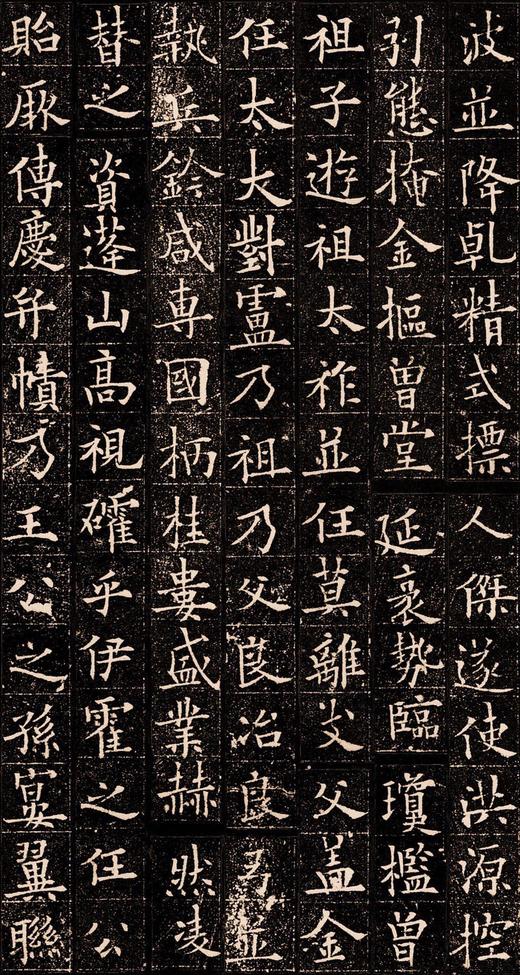 波並降乹精式摽人傑遂使洪源控
引態掩金摳曾堂延袤勢臨瓊檻曾
祖子遊祖太祚並任莫離支父盖金
任太大對盧乃祖乃父良冶良弓並
執兵鈐咸専國柄桂婁盛業赫然凌
替之資蓬山高視確乎伊霍之任公
貽厥傳慶弁幘乃王公之孫宴翼聮